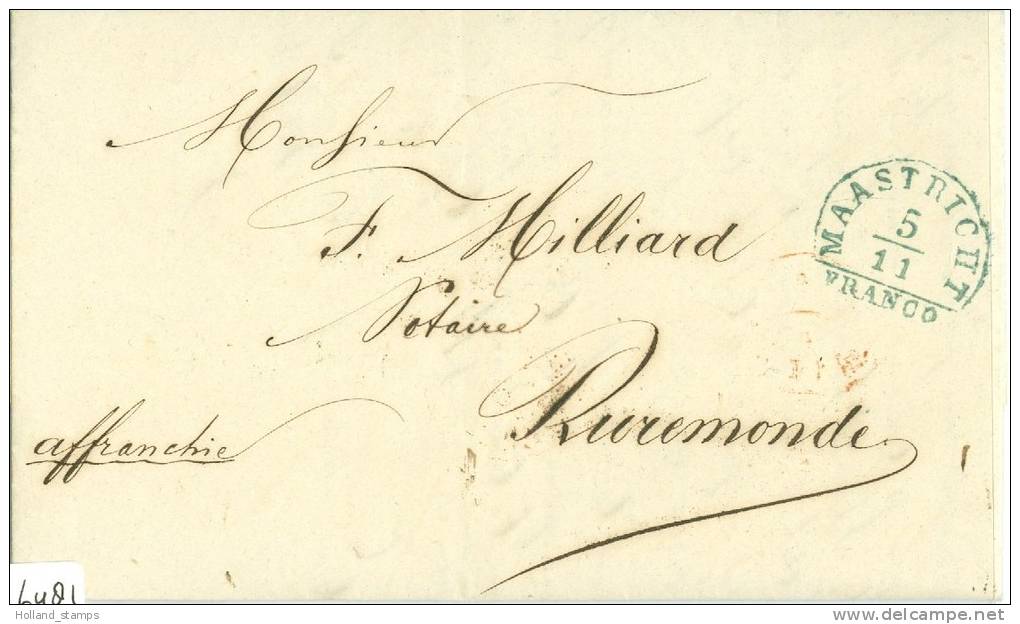 Monsieur
F. Milliard
Notaire
Ruremonde
affranchie
MAASTRICHT
5/11
FRANCO
6481
Holland_stamps
www.delcampe.net